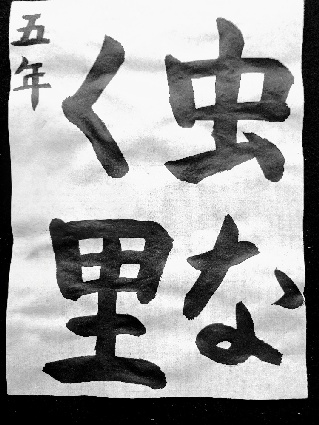 虫な
く里
五年